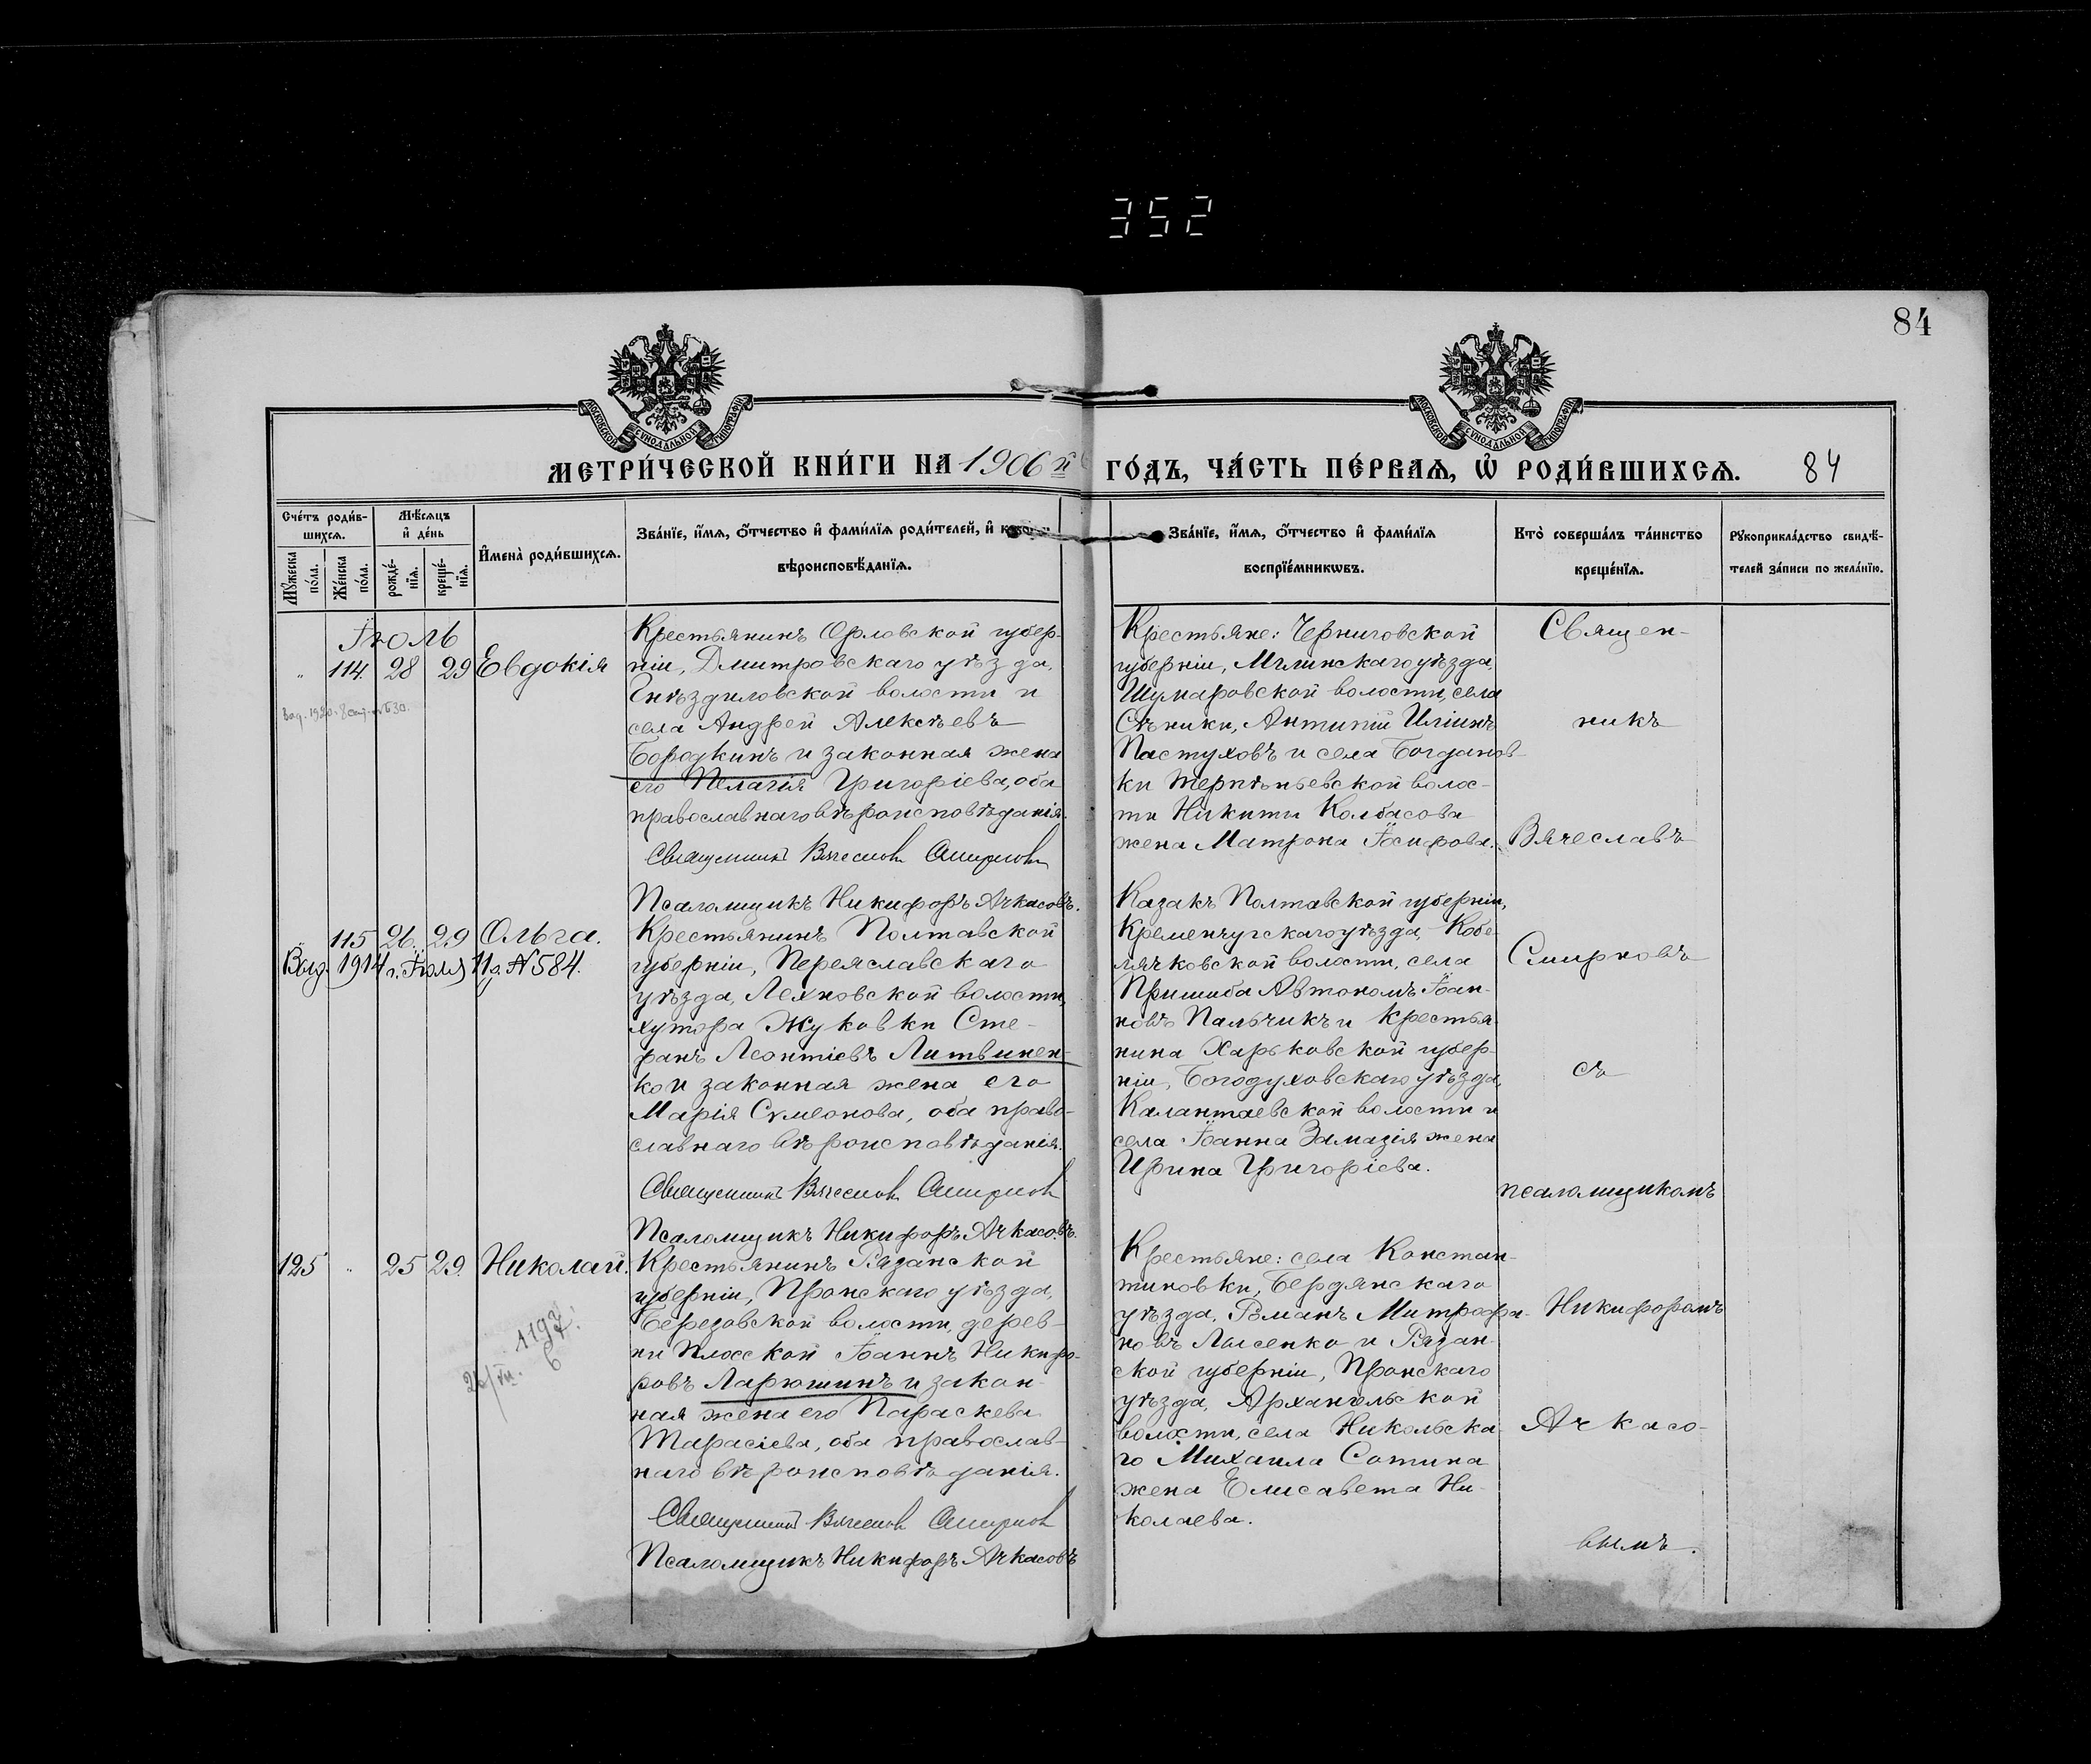 352
84
МОСКОВСКОЙ СУНОДАЛЬНОЙ ТИПОГРАФІИ
МОСКОВСКОЙ СУНОДАЛЬНОЙ ТИПОГРАФІИ
МЕТРИ́ЧЕСКОЙ КНИ́ГИ НА 1906 й
ГО́ДЪ, ЧА́СТЬ ПЕ́РВАѦ, Ѡ҆ РОДИ́ВШИХСѦ. 84
Сче́тъ роди́в-
шихсѧ.
Мѣ́сѧцъ
и҆ де́нь
Мꙋ́жеска по́ла.
Же́нска по́ла.
рожде́-нїѧ.
креще́-нїѧ.
И҆мена̀ роди́вшихсѧ.
Зва́нїе, и҆́мѧ, ѻ҆́тчество и҆ фами́лїѧ роди́телей, и҆
вѣроисповѣ́данїѧ.
Зва́нїе, и҆́мѧ, ѻ҆́тчество и҆ фами́лїѧ
воспрїе́мникѡвъ.
Кто̀ соверша́лъ та́инство
креще́нїѧ.
Рꙋкоприкла́дство свидѣ́-
телей за́писи по жела́нїю.
Іюль
" 114. 28 29 Евдокія
Крестьянинъ Орловской губер-
ніи, Дмитровскаго уѣзда,
Гнѣздиловской волости и
села Андрей Алексѣевъ
Бородкинъ и законная жена
его Пелагія Григоріева, оба
православнаго вѣроисповѣданія.
Священникъ Вячеславъ Смирновъ
Псаломщикъ Никифоръ Ачкасовъ.
Крестьяне: Черниговской
губерніи, Мглинскаго уѣзда,
Шумаровской волости, села
Сѣники, Антипій Иліинъ
Пастуховъ и села Богданов-
ки Терпѣньевской волос-
ти Никиты Колбасова
жена Матрона Іосифова.
115 26. 29 Ольга.
Выд. 1914 г. Іюля 11 д. № 584.
Крестьянинъ Полтавской
губерніи, Переяславскаго
уѣзда, Лехновской волости,
хутора Жуковки Сте-
фанъ Леонтіевъ Литвинен-
ко и законная жена его
Марія Сѵмеонова, оба право-
славнаго вѣроисповѣданія.
Священникъ Вячеславъ Смирновъ
Псаломщикъ Никифоръ Ачкасовъ.
Казакъ Полтавской губерніи,
Кременчугскаго уѣзда, Кобе-
лячковской волости, села
Пришиба Автономъ Іоан-
новъ Пальчикъ и крестья-
нина Харьковской губер-
ніи, Богодуховскаго уѣзда,
Калантаевской волости и
села Іоанна Замазія жена
Ирина Григоріева.
125 " 25 29. Николай.
1197
Крестьянинъ Рязанской
губерніи, Пронскаго уѣзда,
Березовской волости, дерев-
ни Плоской Іоаннъ Никифо-
ровъ Ларюшинъ и закон-
ная жена его Параскева
Тарасіева, оба православ-
наго вѣроисповѣданія.
Священникъ Вячеславъ Смирновъ
Псаломщикъ Никифоръ Ачкасовъ
Крестьяне: села Констан-
тиновки, Бердянскаго
уѣзда, Романъ Митрофа-
новъ Лысенко и Рязан-
ской губерніи, Пронскаго
уѣзда, Архангельской
волости, села Никольска-
го Михаила Сотина
жена Елисавета Ни-
колаева.
Священ-
никъ
Вячеславъ
Смирновъ
съ
псаломщикомъ
Никифоромъ
Ачкасо-
вымъ.